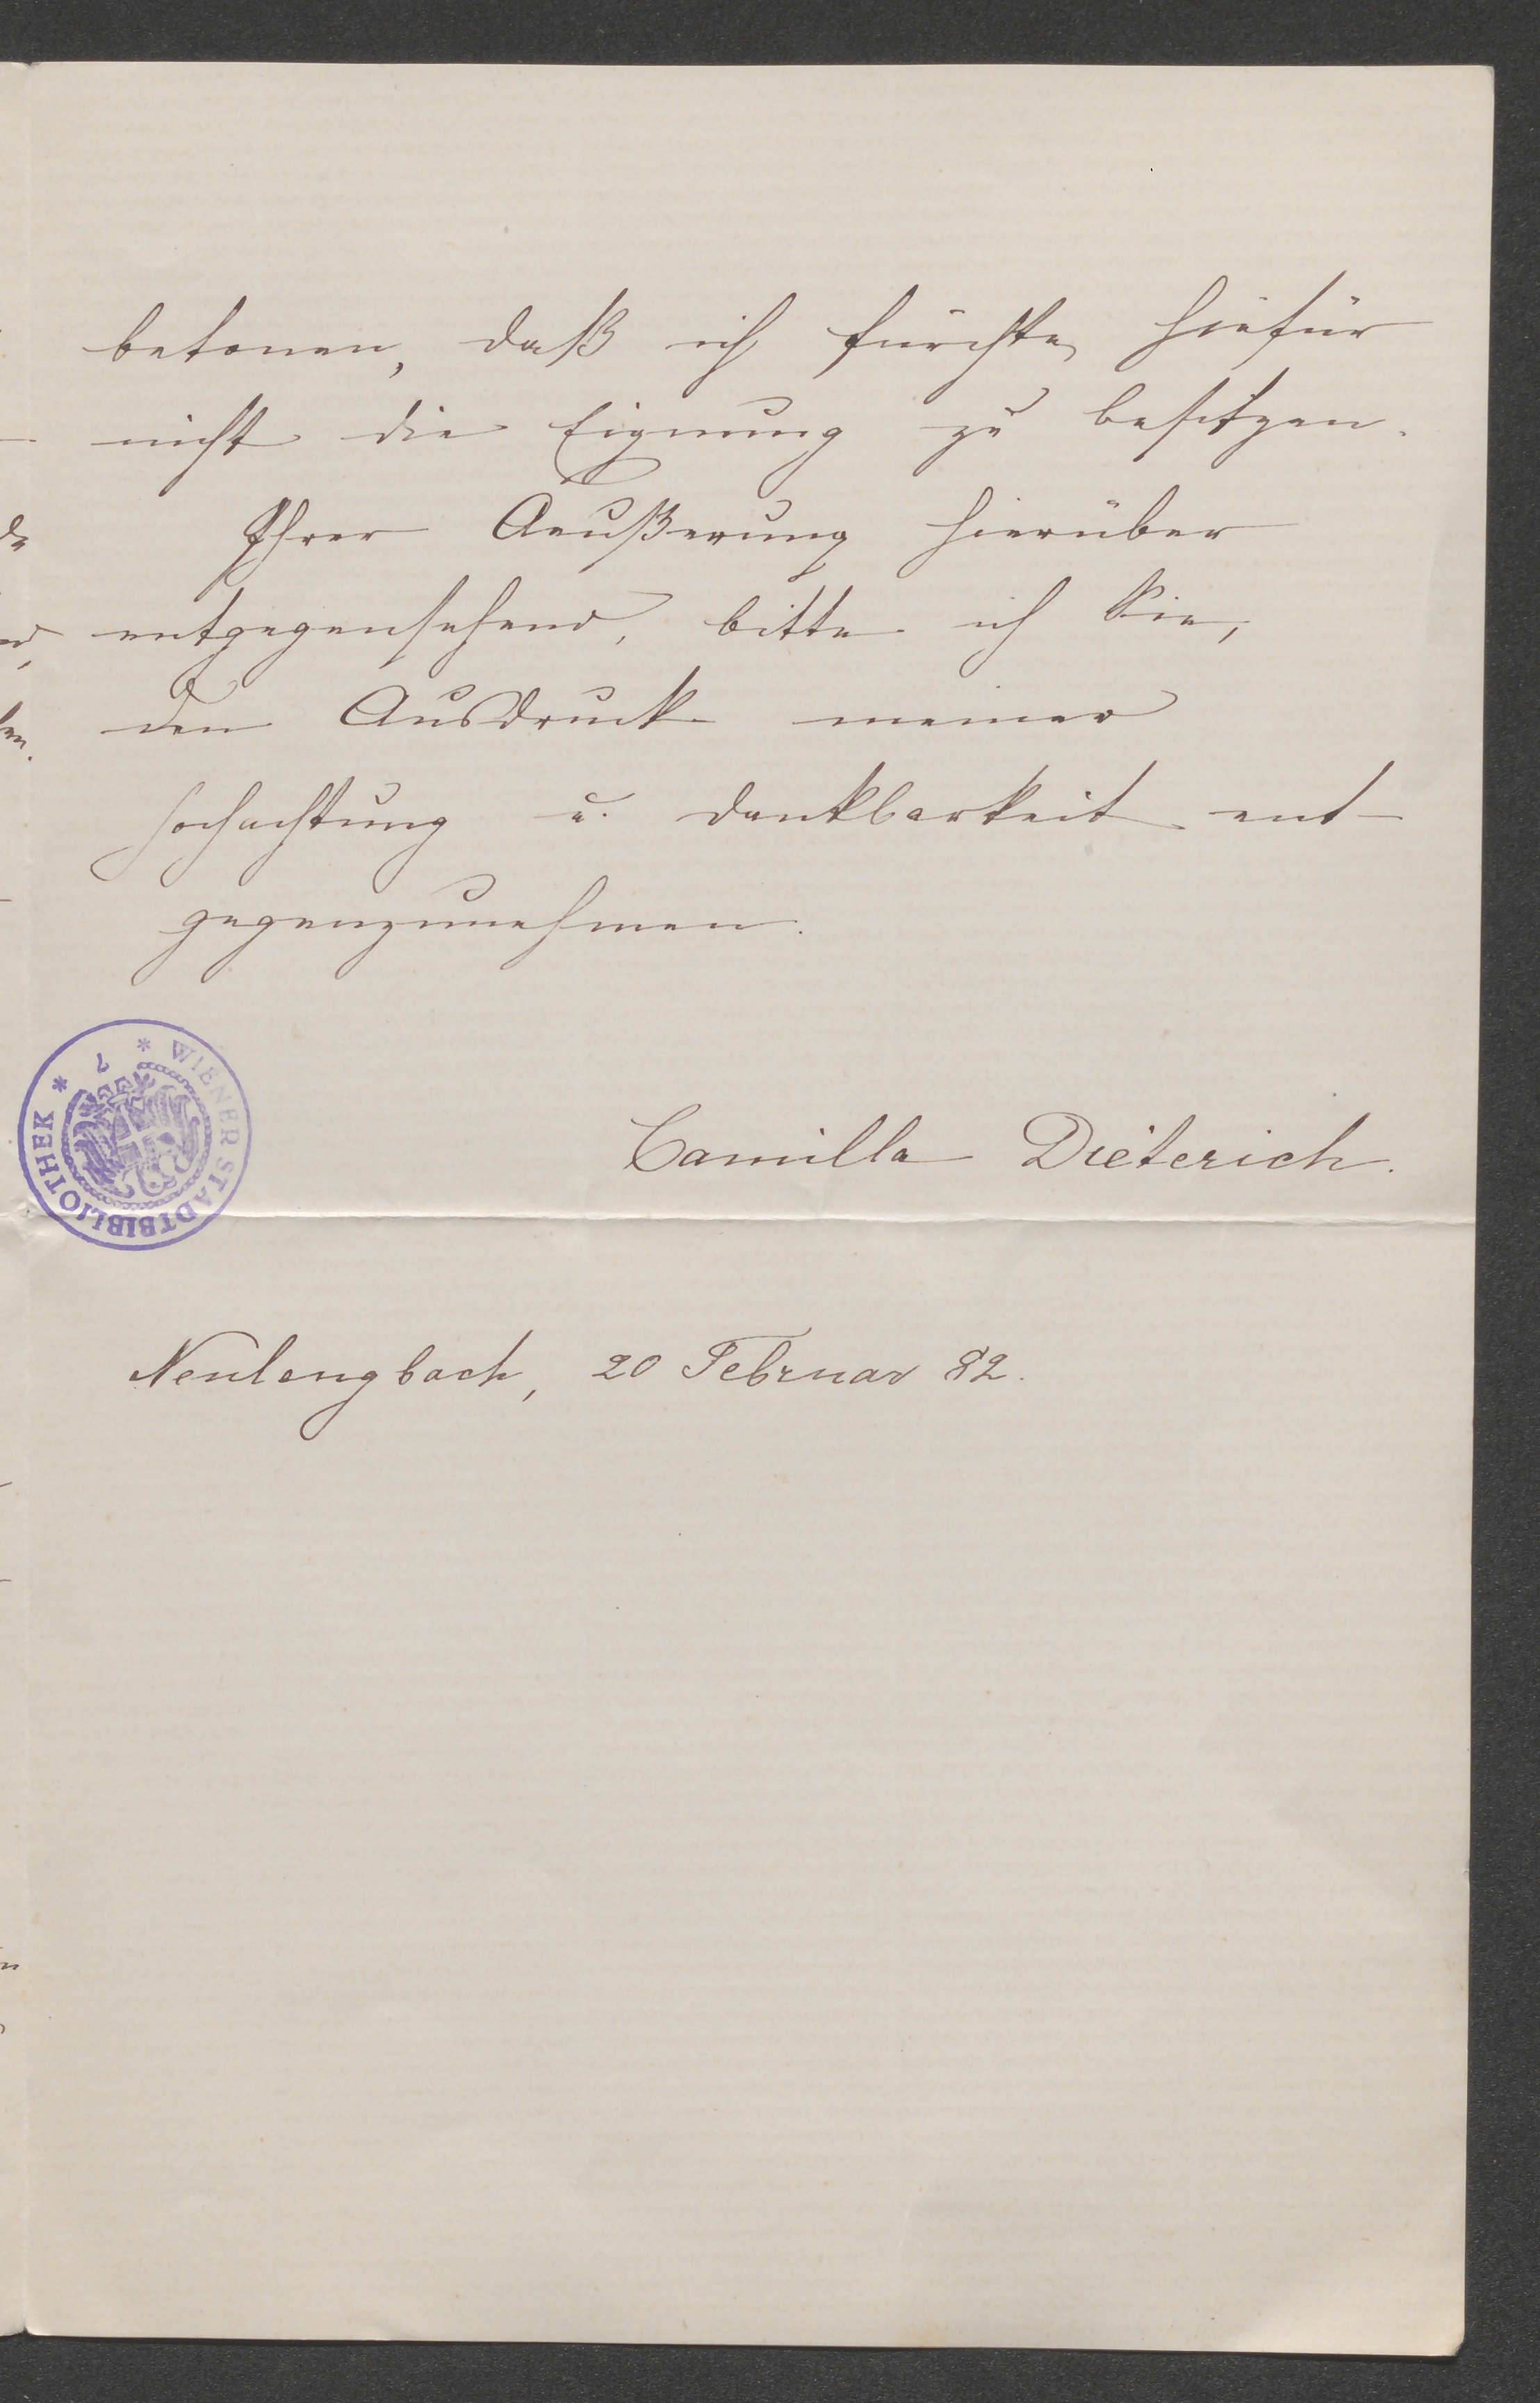 betonen, daß ich fürchte, hiefür
nicht die Eignung zu besitzen.
Ihrer Aeußerung hierüber
entgegensehend, bitte ich Sie,
den Ausdruck meiner
Hochachtung u. Dankbarkeit ent-
gegenzunehmen.
* WIENER STADTBIBLIOTHEK * 7
Camilla Dieterich.
Neulengbach, 20 Februar 82.